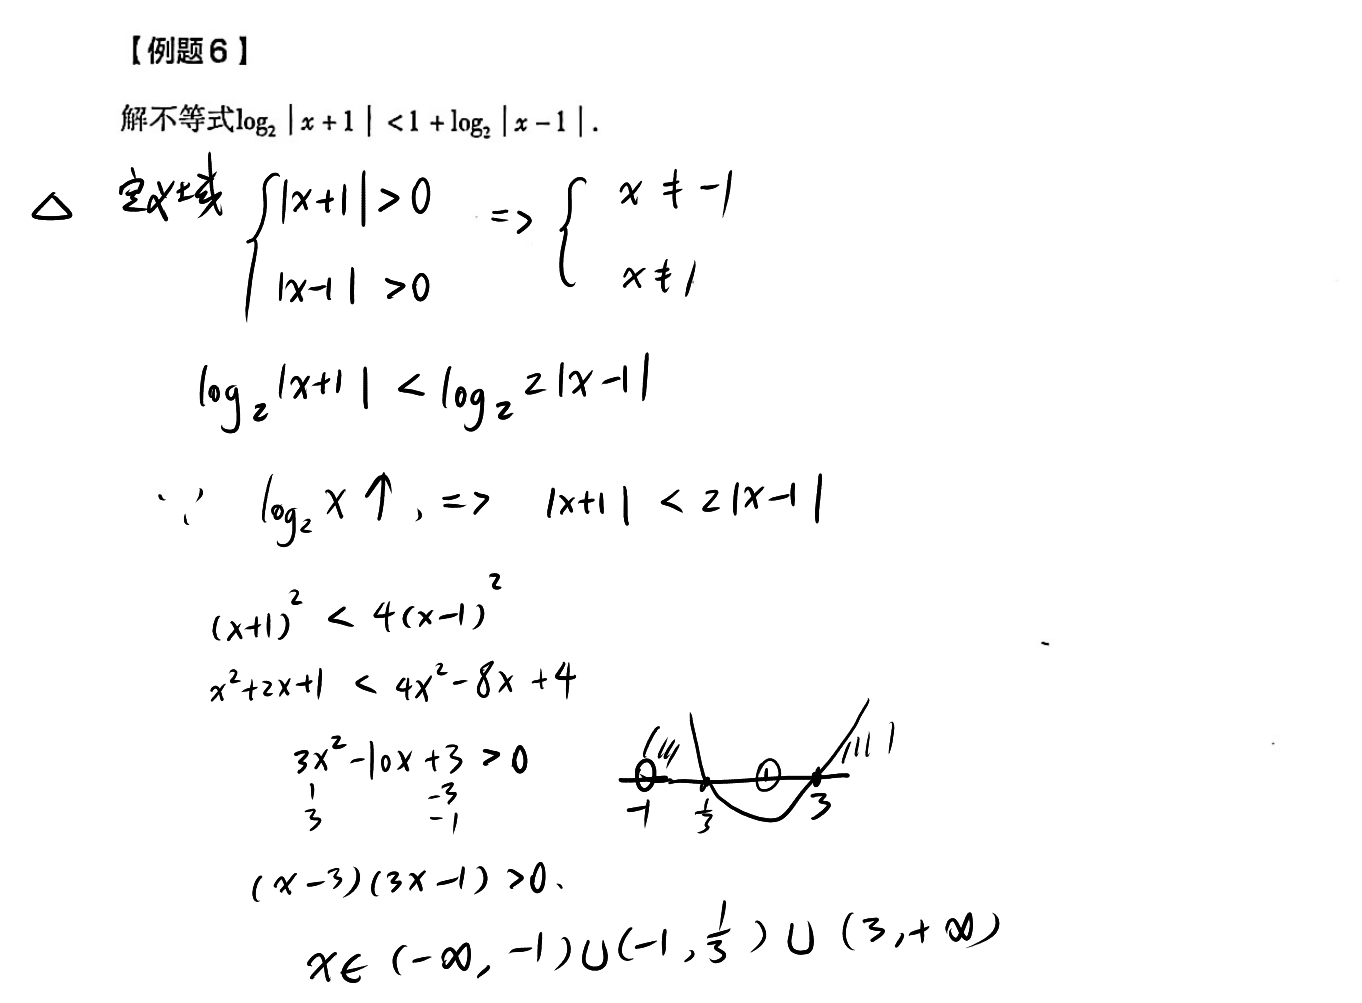 【例题6】
解不等式log₂|x+1|<1+log₂|x-1|.
△ 定义域 { |x+1|>0 => { x≠-1
|x-1|>0 x≠1
log₂|x+1| < log₂2|x-1|
∵ log₂x↑, => |x+1| < 2|x-1|
(x+1)² < 4(x-1)²
x²+2x+1 < 4x²-8x+4
3x²-10x+3>0
1 -3
3 -1
-1 1/3 1 3
(x-3)(3x-1)>0.
x∈(-∞,-1)∪(-1,1/3)∪(3,+∞)